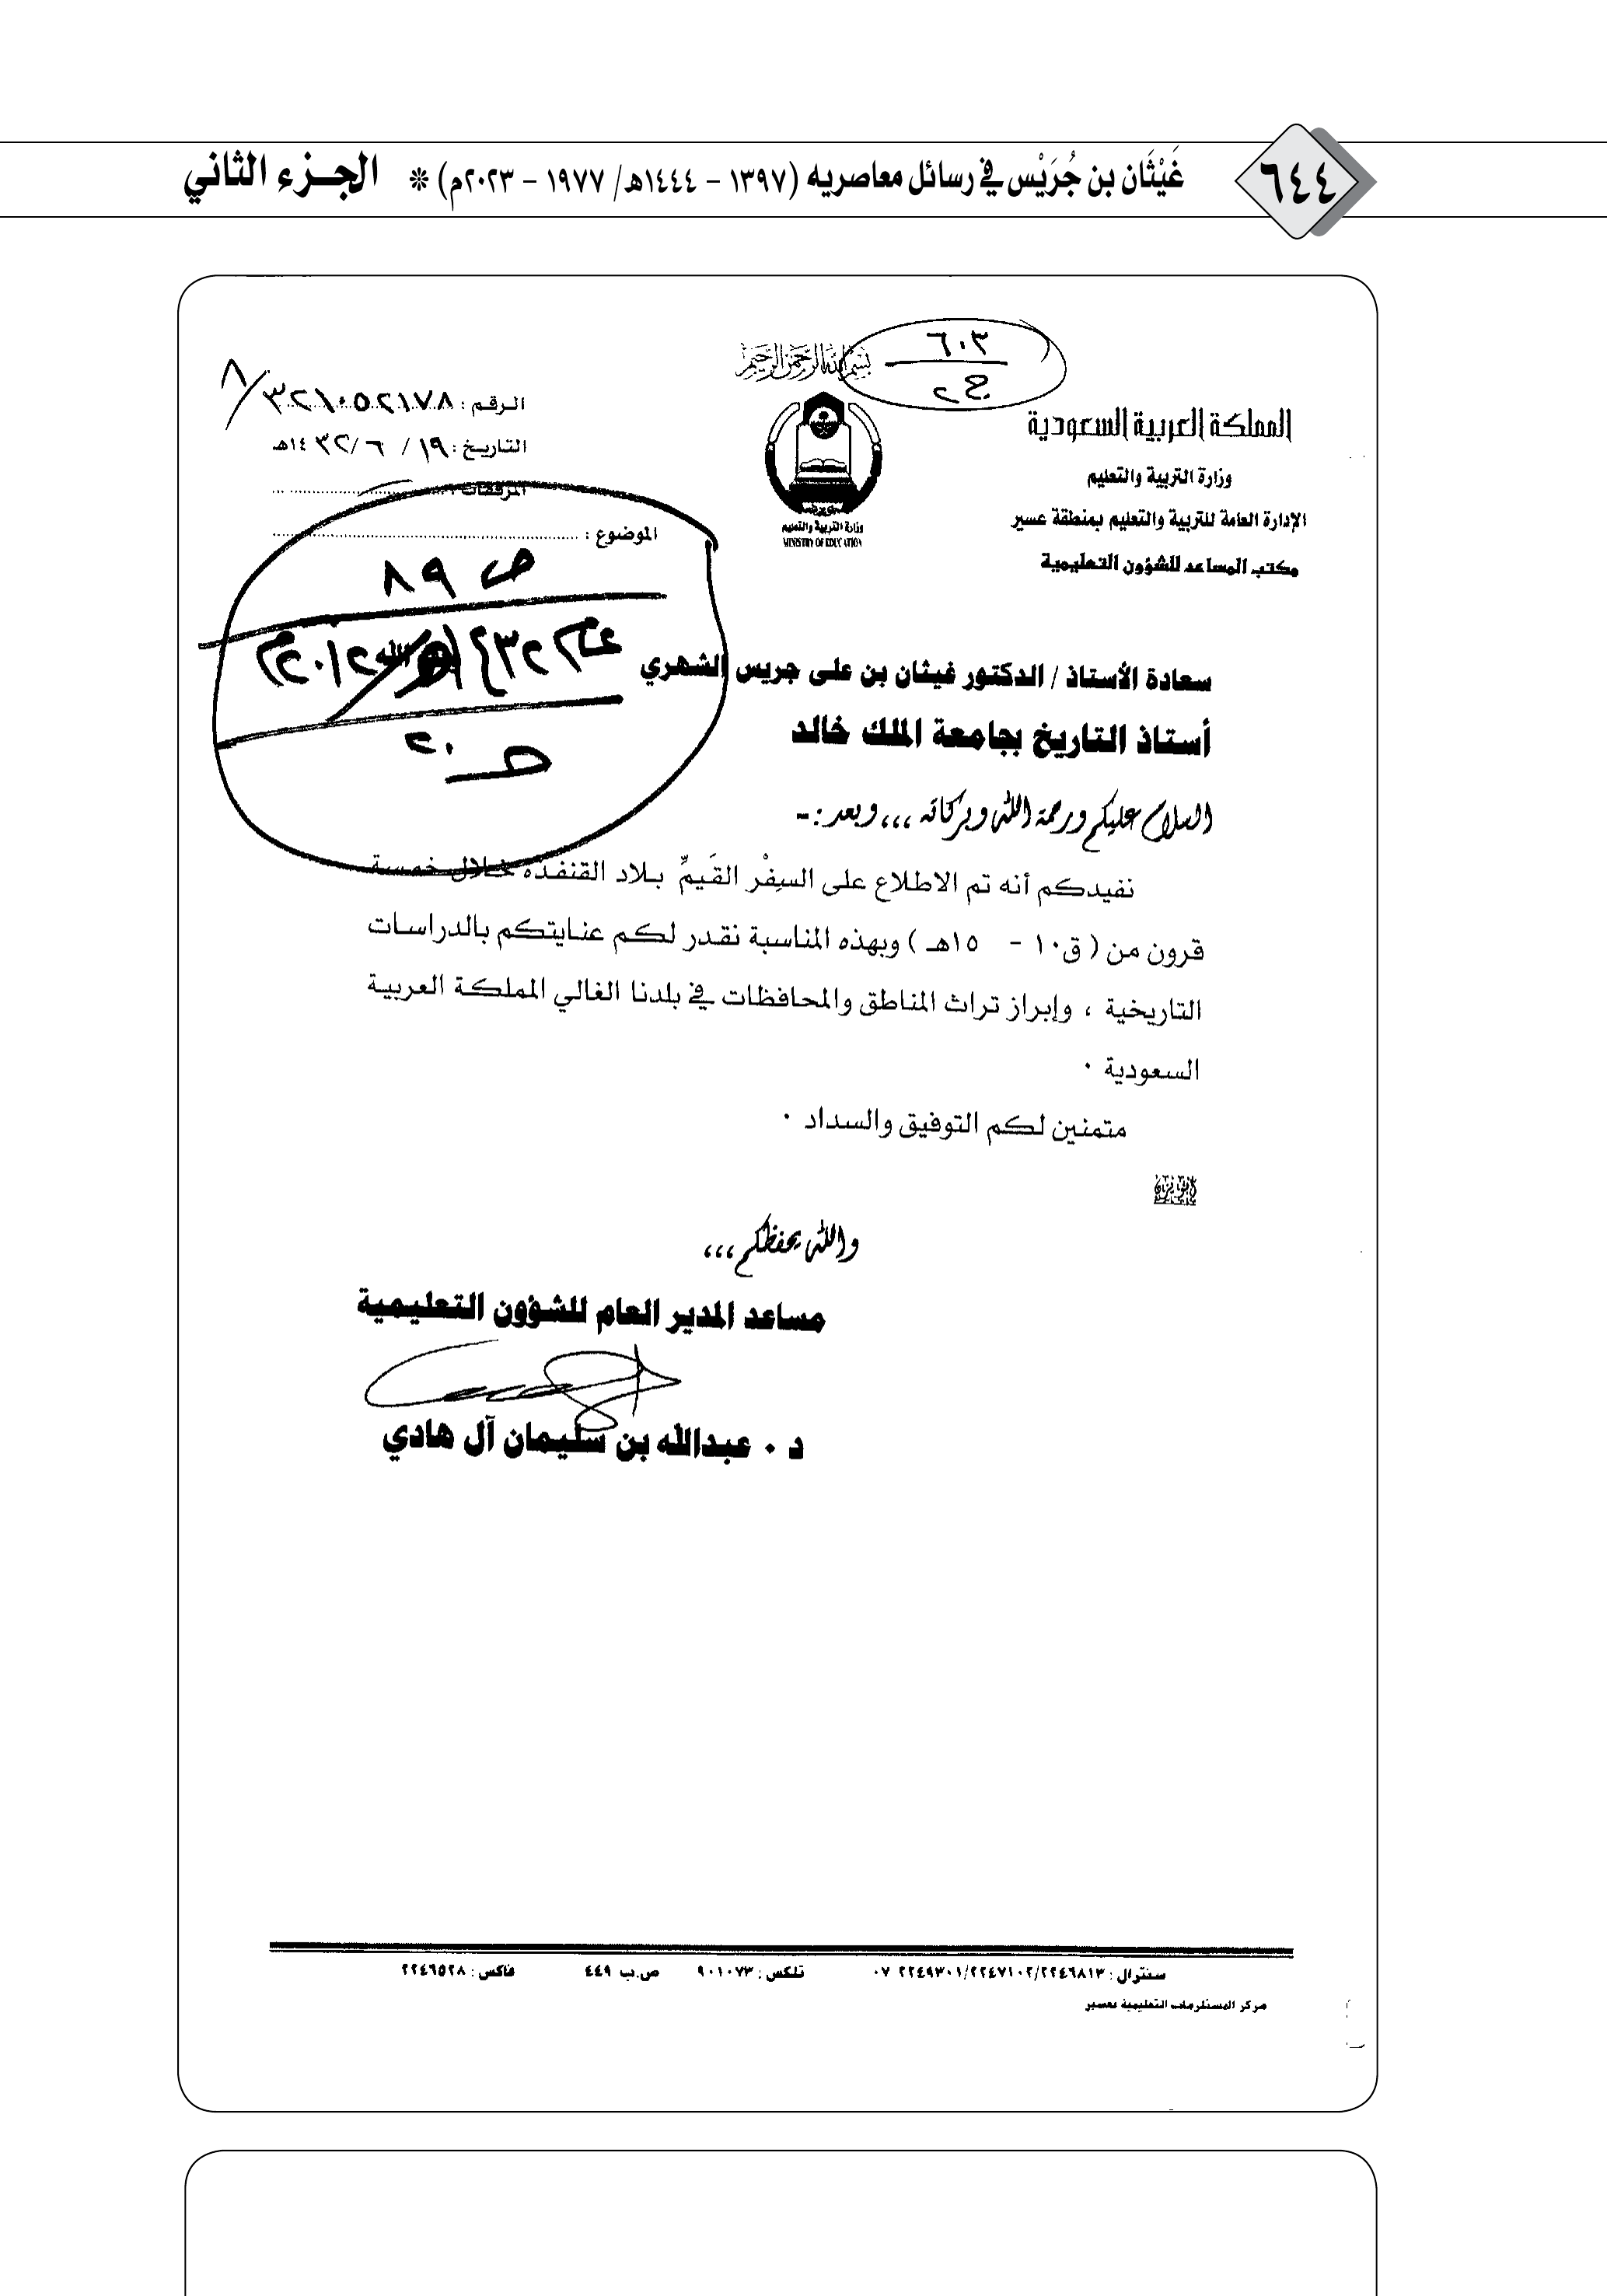 ٦٤٤
غَيْثَان بن جُرَيْس في رسائل معاصريه (١٣٩٧ – ١٤٤٤هـ/ ١٩٧٧ – ٢٠٢٣م) * الجـزء الثاني
٦٠٣
ج٢
بسم الله الرحمن الرحيم
المملكة العربية السعودية
وزارة التربية والتعليم
الإدارة العامة للتربية والتعليم بمنطقة عسير
مكتب المساعد للشؤون التعليمية
وزارة التربية والتعليم
MINISTRY OF EDUCATION
الرقم : ٣٢١٠٥٢١٧٨ / ٨
التاريخ : ١٩ / ٦ / ١٤٣٢هـ
المرفقات :
الموضوع :
ص ٨٩
سعادة الأستاذ / الدكتور غيثان بن على جريس الشهري
أستاذ التاريخ بجامعة الملك خالد
السلام عليكم ورحمة الله وبركاته ،،، وبعد :-
نفيدكم أنه تم الاطلاع على السِفْر القَيمِّ بـلاد القنفذة خـلال خمسـة
قرون من ( ق١٠ - ١٥هـ ) وبهذه المناسبة نقـدر لـكـم عنـايتـكم بالدراسـات
التاريخية ، وإبراز تراث المناطق والمحافظات في بلدنا الغالي المملكـة العربيـة
السعودية ٠
متمنين لـكم التوفيق والسداد ٠
والله يحفظكم ،،،
مساعد المدير العام للشؤون التعليمية
د ٠ عبدالله بن سليمان آل هادي
سنترال : ٢٢٤٦٨١٣/٢٢٤٧١٠٢/٢٢٤٩٣٠١ ٠٧ تلكس : ٩٠١٠٧٣ ص.ب ٤٤٩ فاكس : ٢٢٤٦٥٢٨
مركز المستلزمات التعليمية بعسير